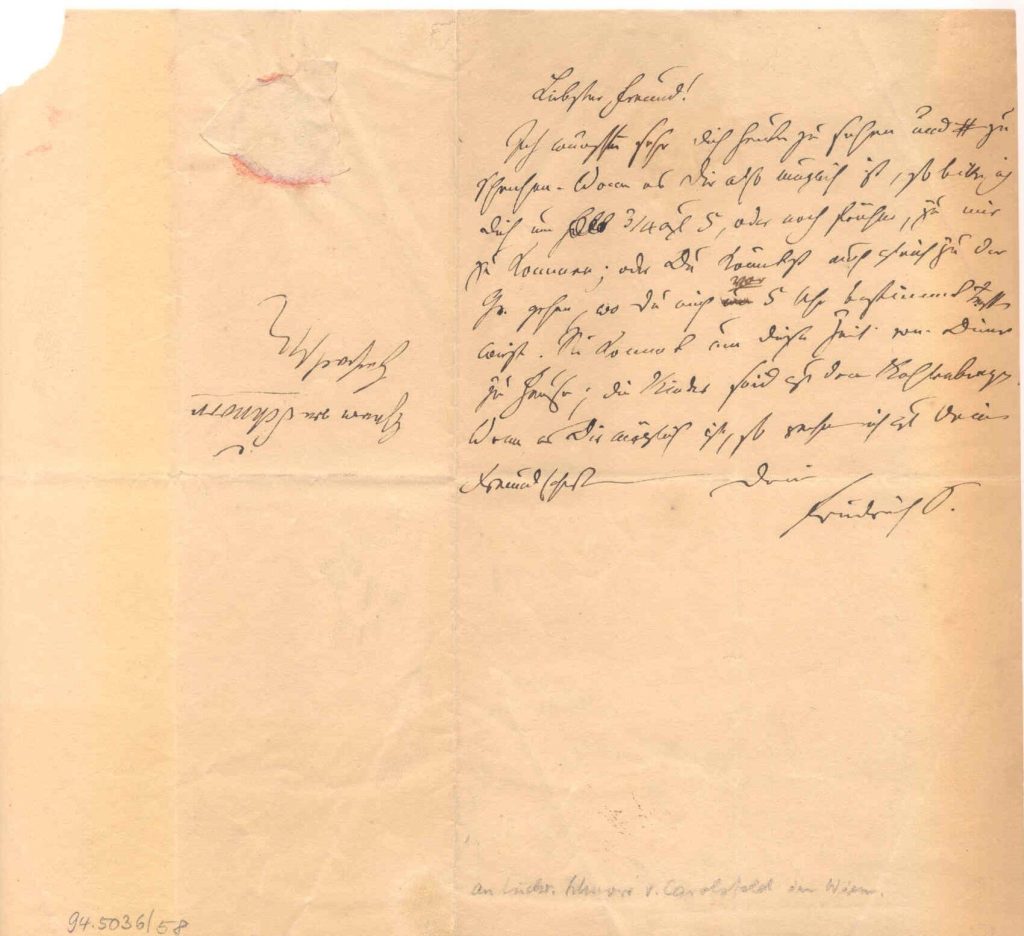 Liebster Freund!
Ich wünschte sehr Dich heute zu sehen und zu
sprechen. Wenn es Dir also möglich ist, so bitte ich
Dich um 3/4 auf 5, oder noch früher, zu mir
zu kommen; oder Du könntest auch gleich zu der
Gr. gehen, wo Du mich vor 5 Uhr bestimmt treffen
wirst. Sie kommt um diese Zeit vom Diner
zu Hause; die Kinder sind auf dem Kahlenberge.
Wenn es Dir möglich ist, so rechne ich auf Deine
Freundschaft Dein
Friedrich S.
Herrn von Schnorr
an Ludw. Schnorr v. Carolsfeld in Wien.
94.5036/58